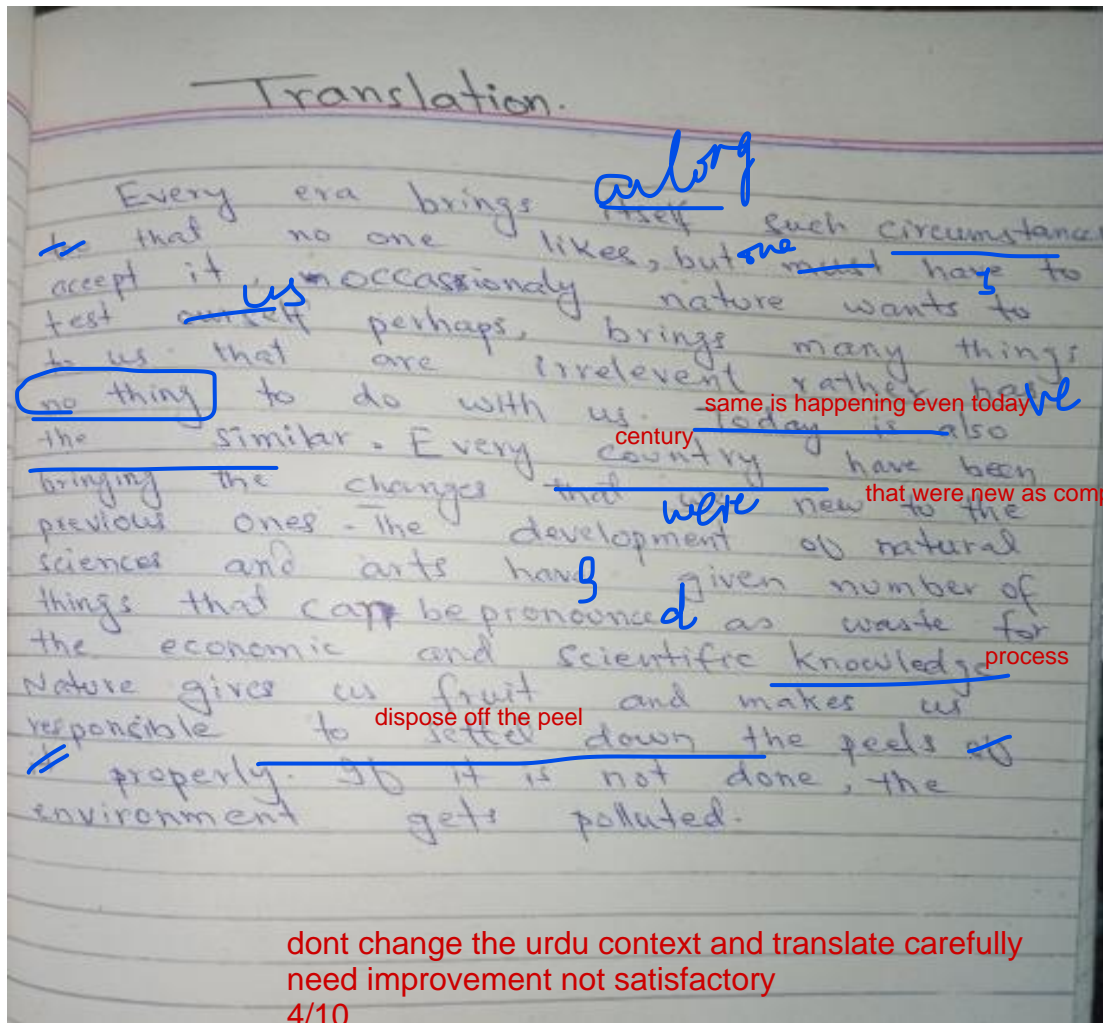 Translation.
along
Every era brings itself such circumstances
to that no one likes, but one must have to
s
accept it. occassionaly nature wants to
us
test ourself perhaps, brings many things
to us that are irrelevent rather has
ve
no thing to do with us. Today is also
same is happening even today
the similar. Every country have been
century
bringing the changes that new to the
were
that were new as comp
previous ones. The development of natural
sciences and arts have given number of
s
things that can be pronounced as waste for
the economic and scientific knowledge
process
Nature gives us fruit and makes us
dispose off the peel
responsible to settel down the peels of
it properly. If it is not done, the
environment gets polluted.
dont change the urdu context and translate carefully
need improvement not satisfactory
4/10